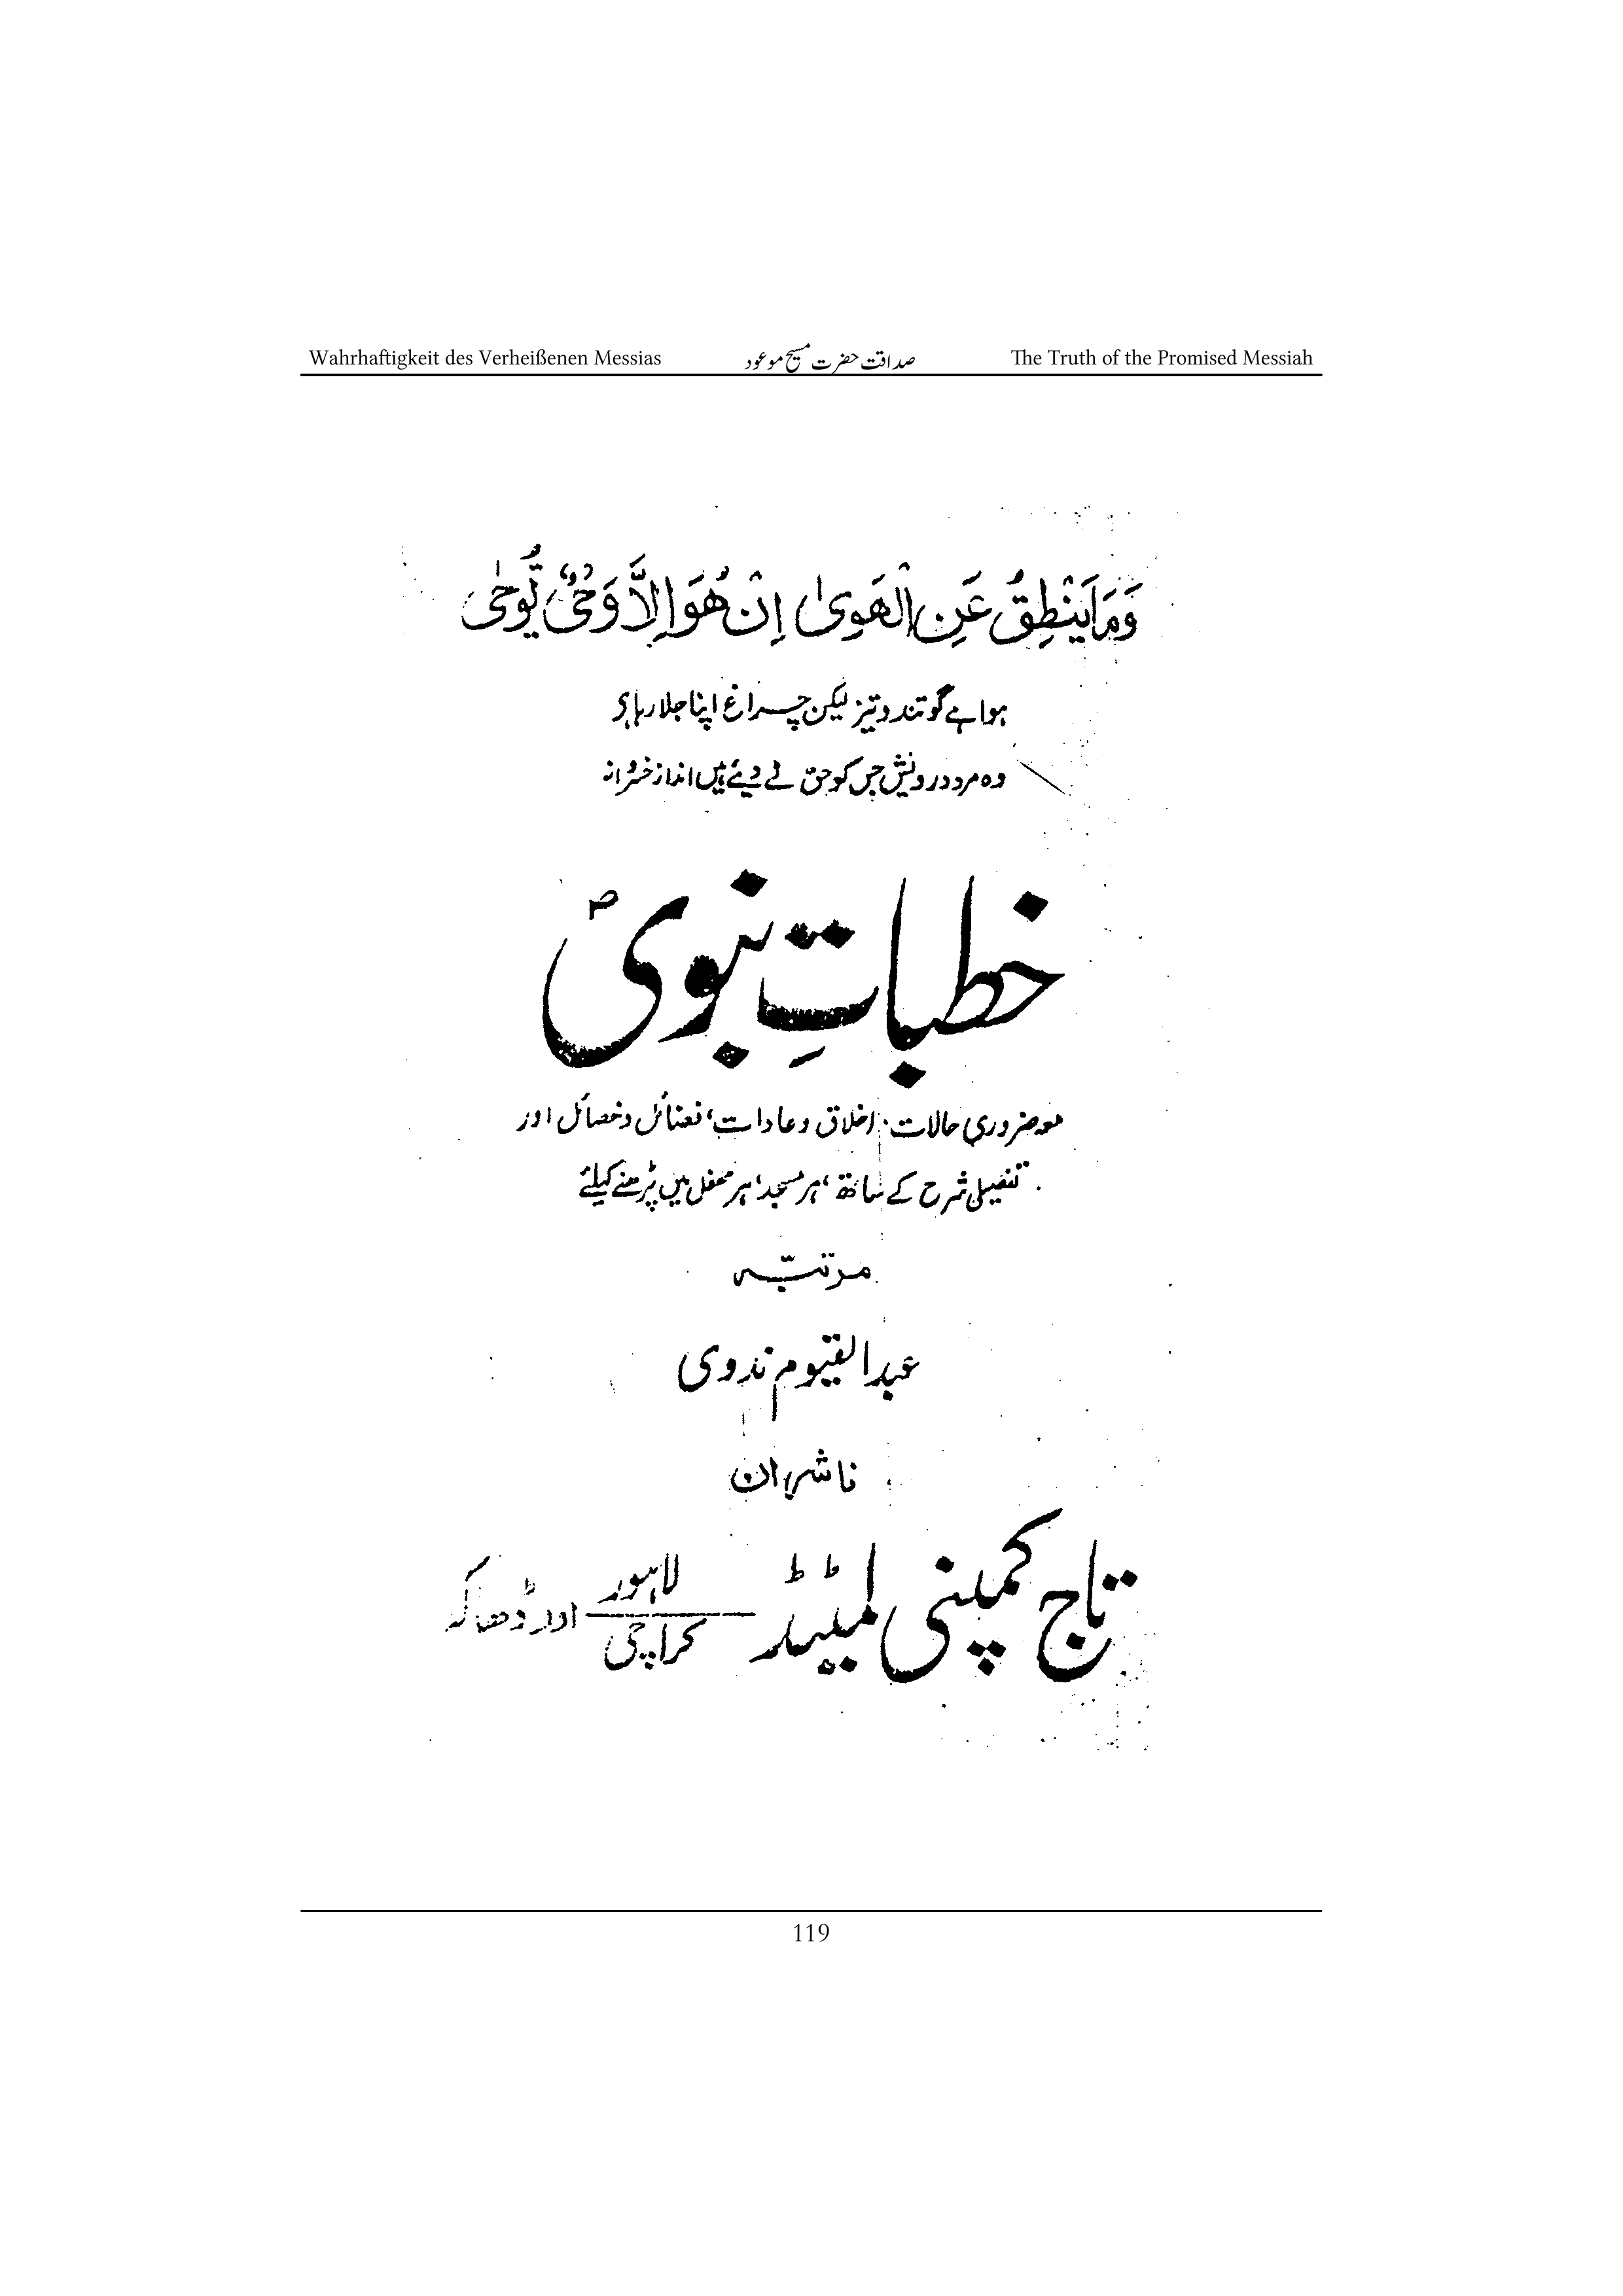 Wahrhaftigkeit des Verheißenen Messias صداقت حضرت مسیح موعود The Truth of the Promised Messiah
وَمَا يَنْطِقُ عَنِ الْهَوٰى اِنْ هُوَ اِلَّا وَحْیٌ يُّوْحٰى
ہوا ہے گو تند و تیز لیکن چراغ اپنا جلا رہا ہی
وہ مرد درویش جس کو حق نے دیئے ہیں انداز خسروانہ
خطباتِ نبوی ؐ
معہ ضروری حالات، اخلاق و عادات، فضائل و خصائل اور
تفصیلی شرح کے ساتھ، ہر مسجد، ہر محفل میں پڑھنے کیلئے
مرتبّہ
عبدالقیوم ندوی
ناشران
تاج کمپنی لمیٹڈ لاہور کراچی اور ڈھاکہ
119